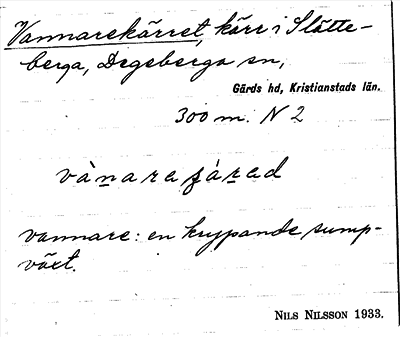 Vannarekärret, kärr i Slätte-
berga, Degeberga sn,
Gärds hd, Kristianstads län.
300 m. N 2
vàn̲arejár̲ed
vannare: en krypande sump-
växt.
NILS NILSSON 1933.